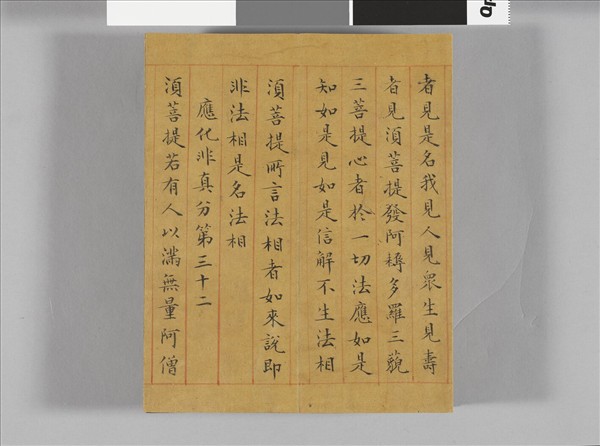 者見是名我見人見眾生見壽
者見須菩提發阿耨多羅三藐
三菩提心者於一切法應如是
知如是見如是信解不生法相
須菩提所言法相者如來說即
非法相是名法相
應化非真分第三十二
須菩提若有人以滿無量阿僧